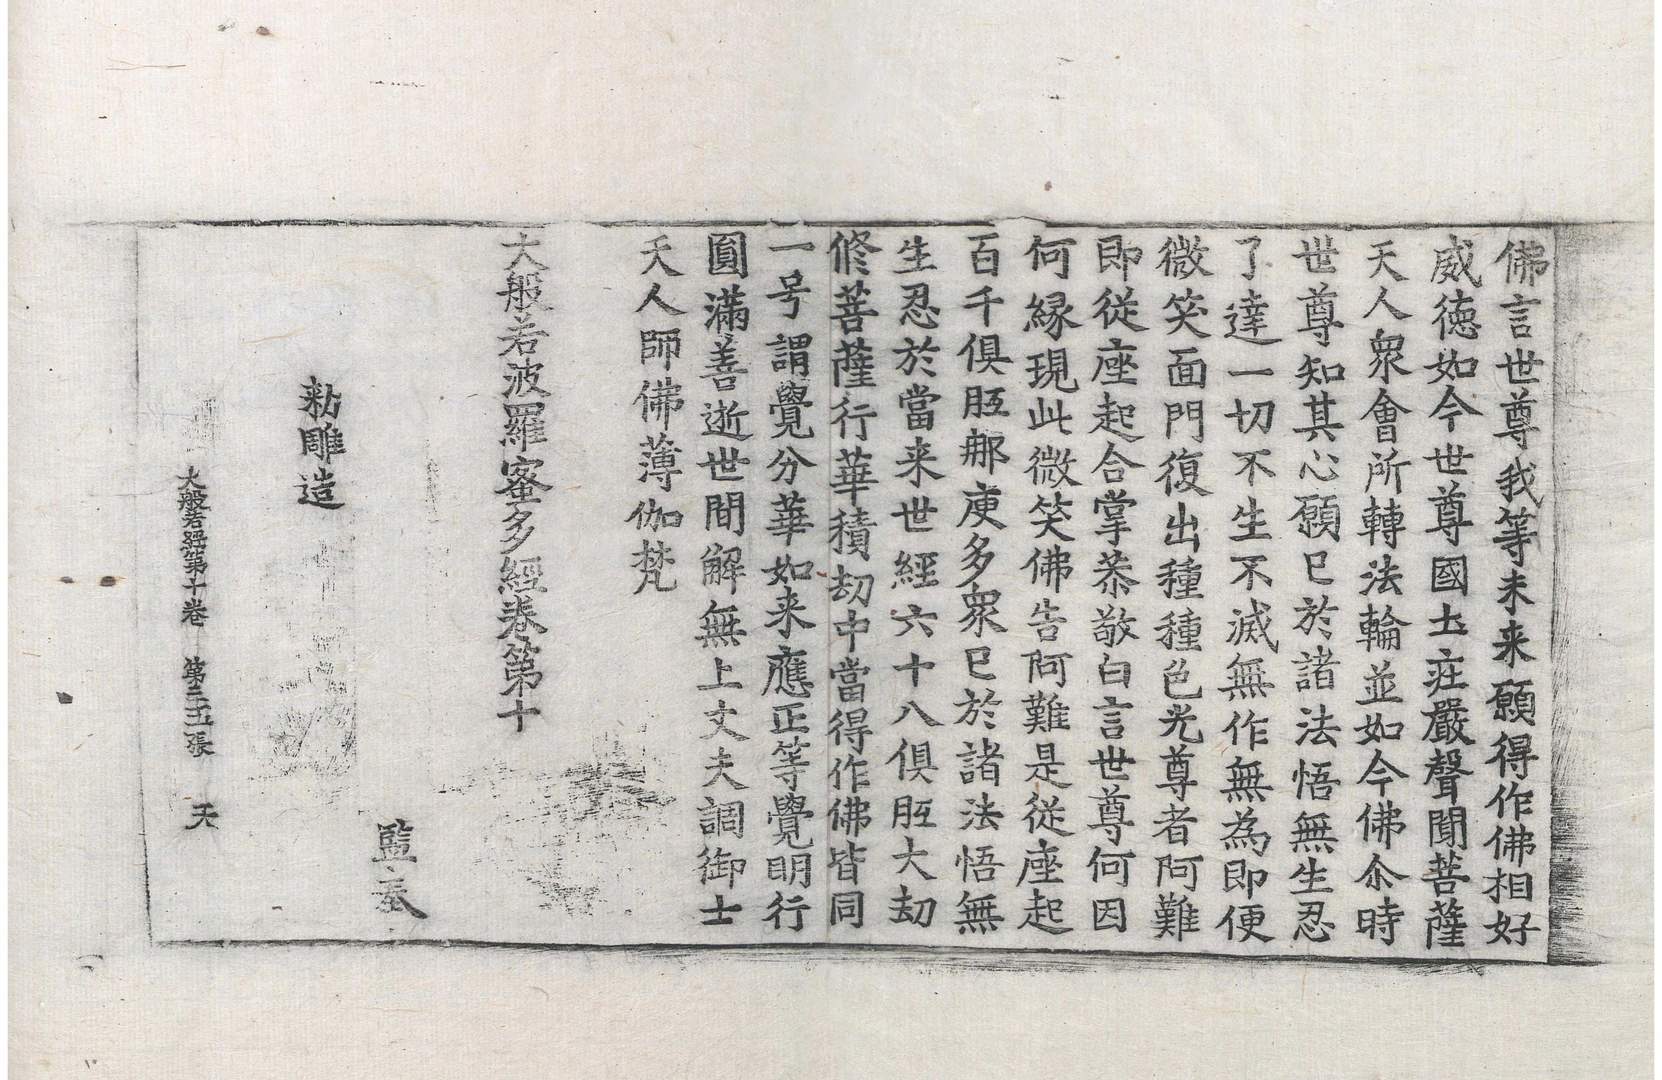 佛言世尊我等未来願得作佛相好
威德如今世尊國土莊嚴聲聞菩薩
天人衆會所轉法輪並如今佛尒時
世尊知其心願已於諸法悟無生忍
了達一切不生不滅無作無為即便
微笑面門復出種種色光尊者阿難
即從座起合掌恭敬白言世尊何因
何緣現此微笑佛告阿難是從座起
百千俱胝那庾多衆已於諸法悟無
生忍於當来世經六十八俱胝大劫
修菩薩行華積劫中當得作佛皆同
一号謂覺分華如来應正等覺明行
圓滿善逝世間解無上丈夫調御士
天人師佛薄伽梵
大般若波羅蜜多經卷第十
監奉
勑雕造
大般若經第十卷 第二五張 天